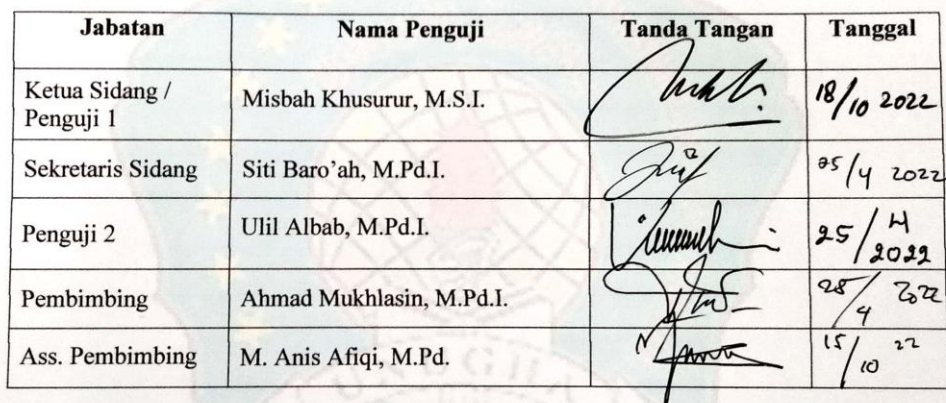 Jabatan Nama Penguji Tanda Tangan Tanggal
Ketua Sidang /
Penguji 1 Misbah Khusurur, M.S.I. 18/10 2022
Sekretaris Sidang Siti Baro'ah, M.Pd.I. 25/4 2022
Penguji 2 Ulil Albab, M.Pd.I. 25/4
2022
Pembimbing Ahmad Mukhlasin, M.Pd.I. 28/4 2022
Ass. Pembimbing M. Anis Afiqi, M.Pd. 15/10 22